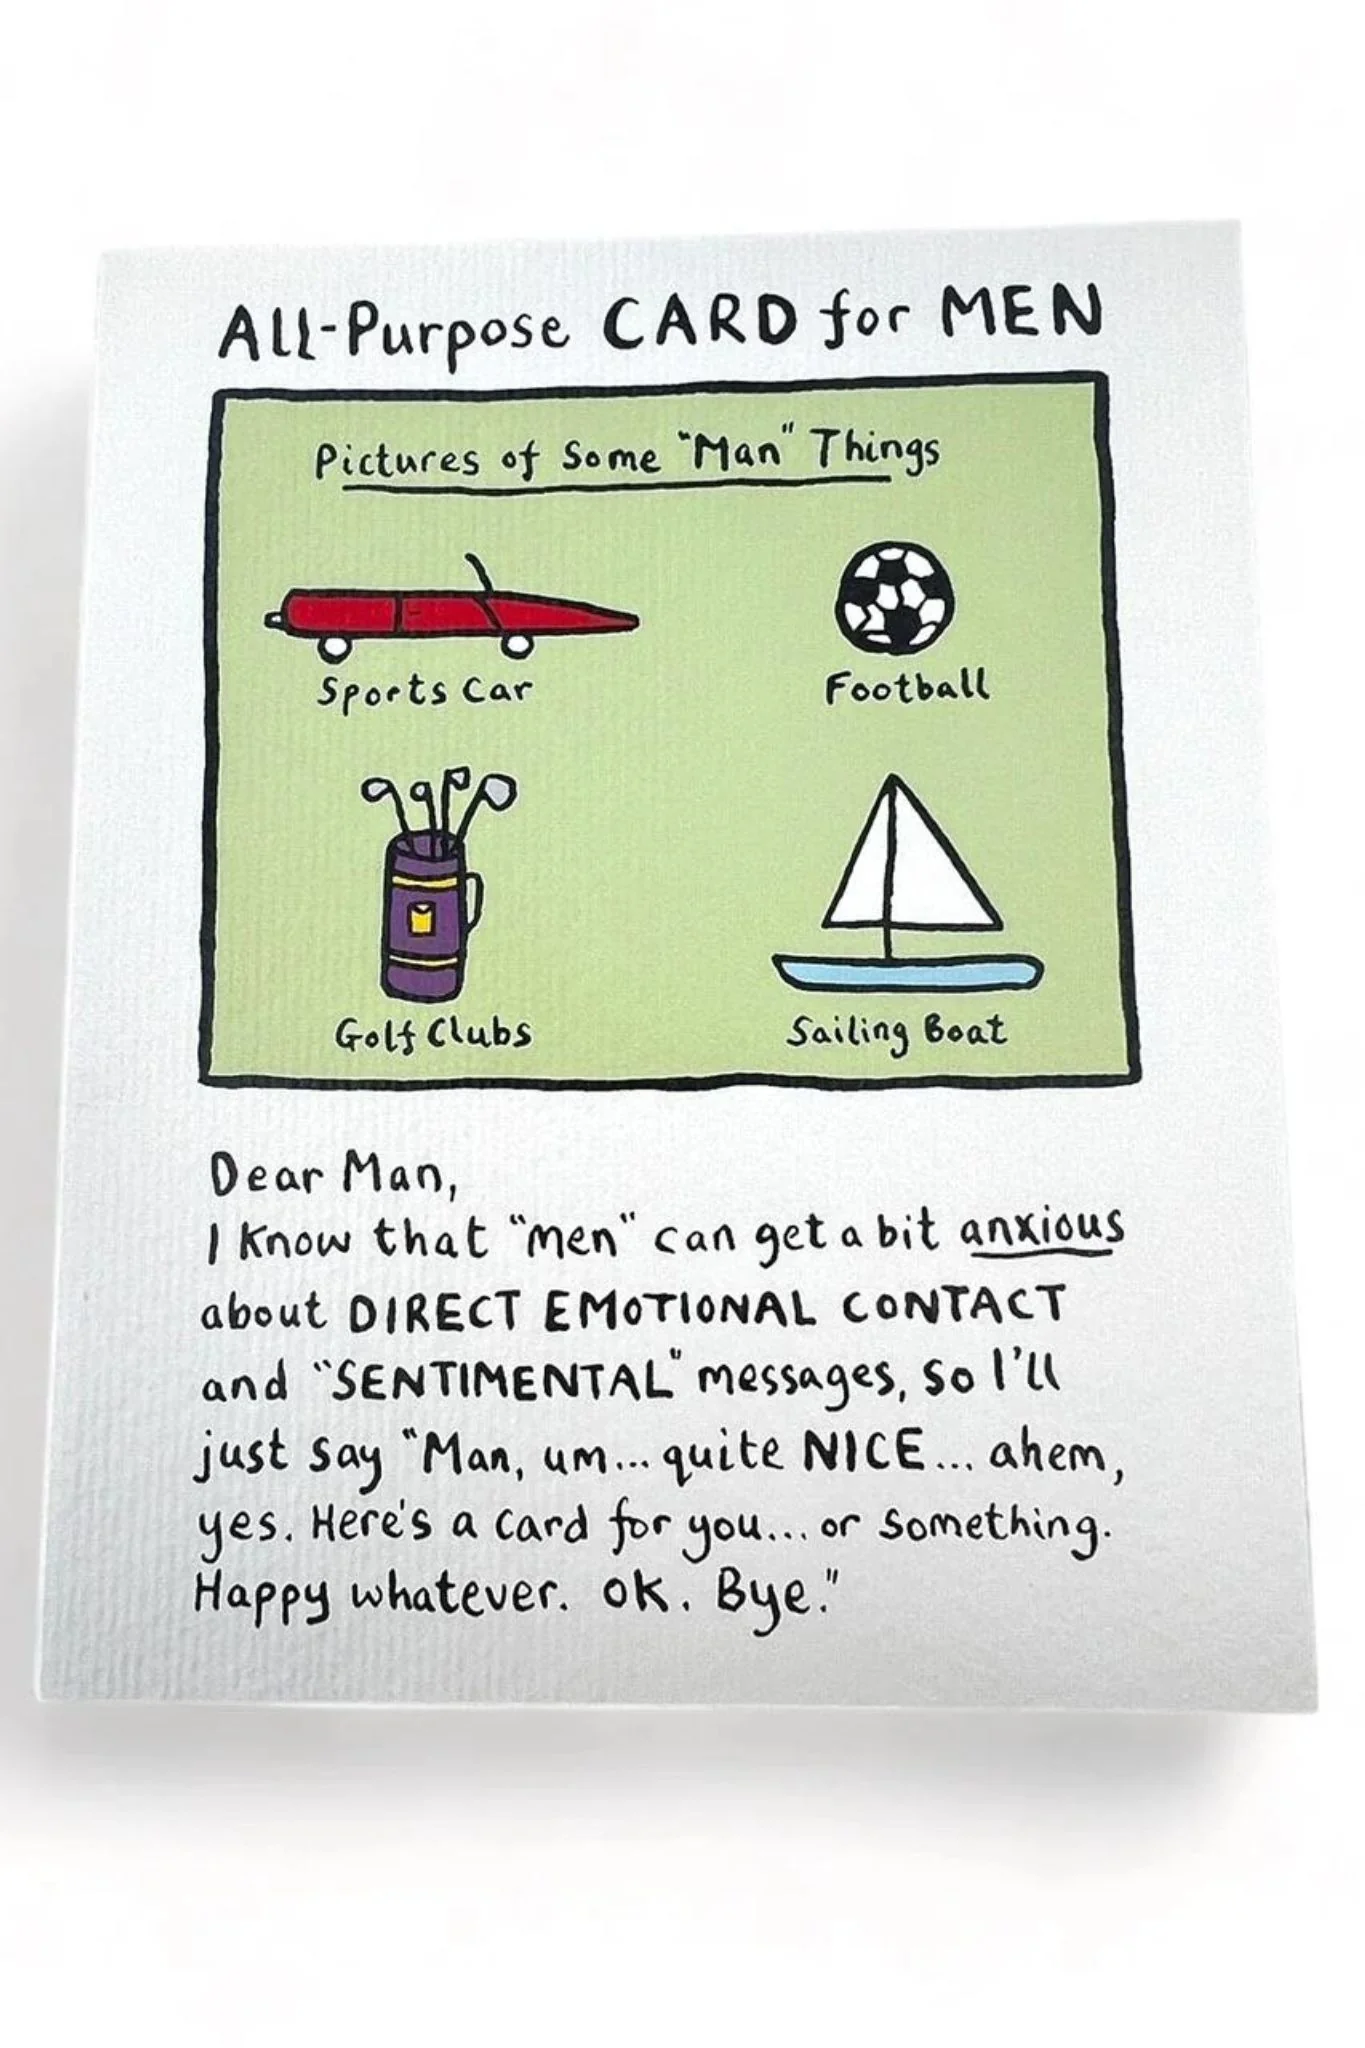 All-Purpose CARD for MEN
Pictures of Some "Man" Things
Sports Car
Football
Golf Clubs
Sailing Boat
Dear Man,
I know that "men" can get a bit anxious
about DIRECT EMOTIONAL CONTACT
and "SENTIMENTAL" messages, so I'll
just say "Man, um... quite NICE... ahem,
yes. Here's a card for you... or something.
Happy whatever. OK. Bye."